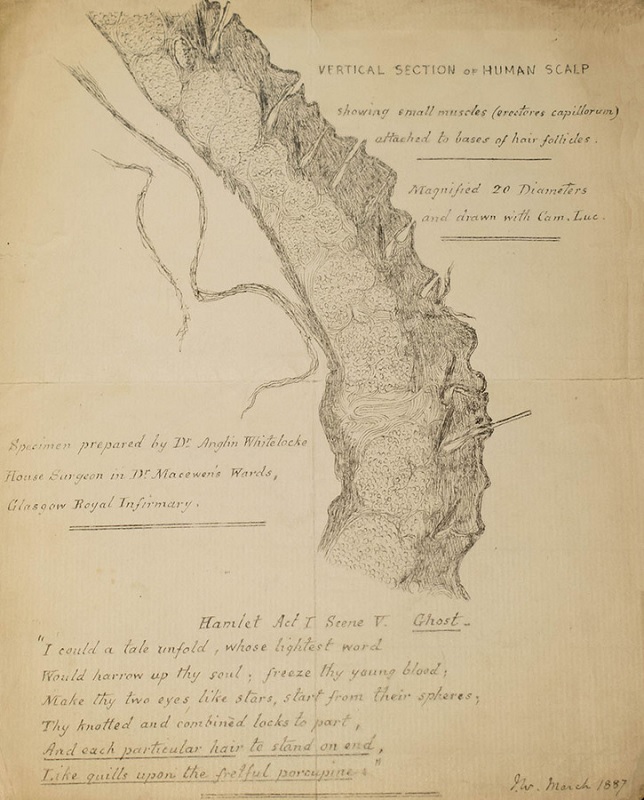 VERTICAL SECTION OF HUMAN SCALP
showing small muscles (erectores capillorum)
attached to bases of hair follicles.
Magnified 20 Diameters
and drawn with Cam. Luc.
Specimen prepared by Dr Anglin Whitelocke
House Surgeon in Dr Macewen's Wards,
Glasgow Royal Infirmary.
Hamlet Act I Scene V. Ghost.
"I could a tale unfold, whose lightest word
Would harrow up thy soul; freeze thy young blood;
Make thy two eyes, like stars, start from their spheres;
Thy knotted and combined locks to part,
And each particular hair to stand on end,
Like quills upon the fretful porcupine:"
March 1887